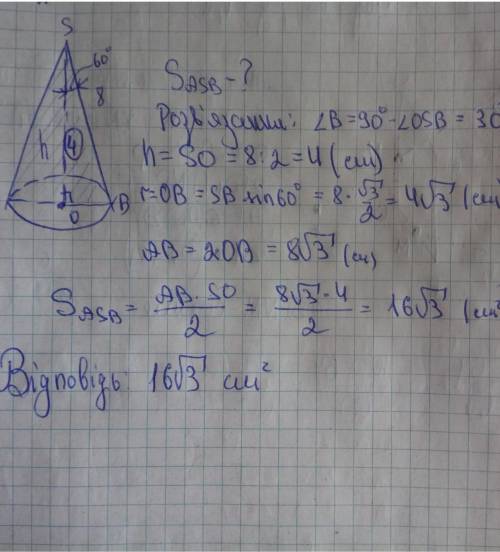 S
60°
8
h
4
r
O
B
S_ASB - ?
Розв'язання: ∠B = 90° - ∠OSB = 30
h = SO = 8 : 2 = 4 (см)
r = OB = SB · sin 60° = 8 · √3/2 = 4√3 (см
AB = 2OB = 8√3 (см)
S_ASB = AB · SO / 2 = 8√3 · 4 / 2 = 16√3 (см²
Відповідь: 16√3 см²